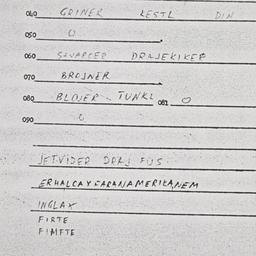 040 GRINER KESTL DIN
050 O
060 SHVARCER DRAJEKIKEF
070 BROJNER
080 BLOJER - TUNKL 081 O
090
JETVIDER DRAJ FUS
ERHALCAY FARANAMERIKANEM
INGLAX
FIRTE
FIMFTE